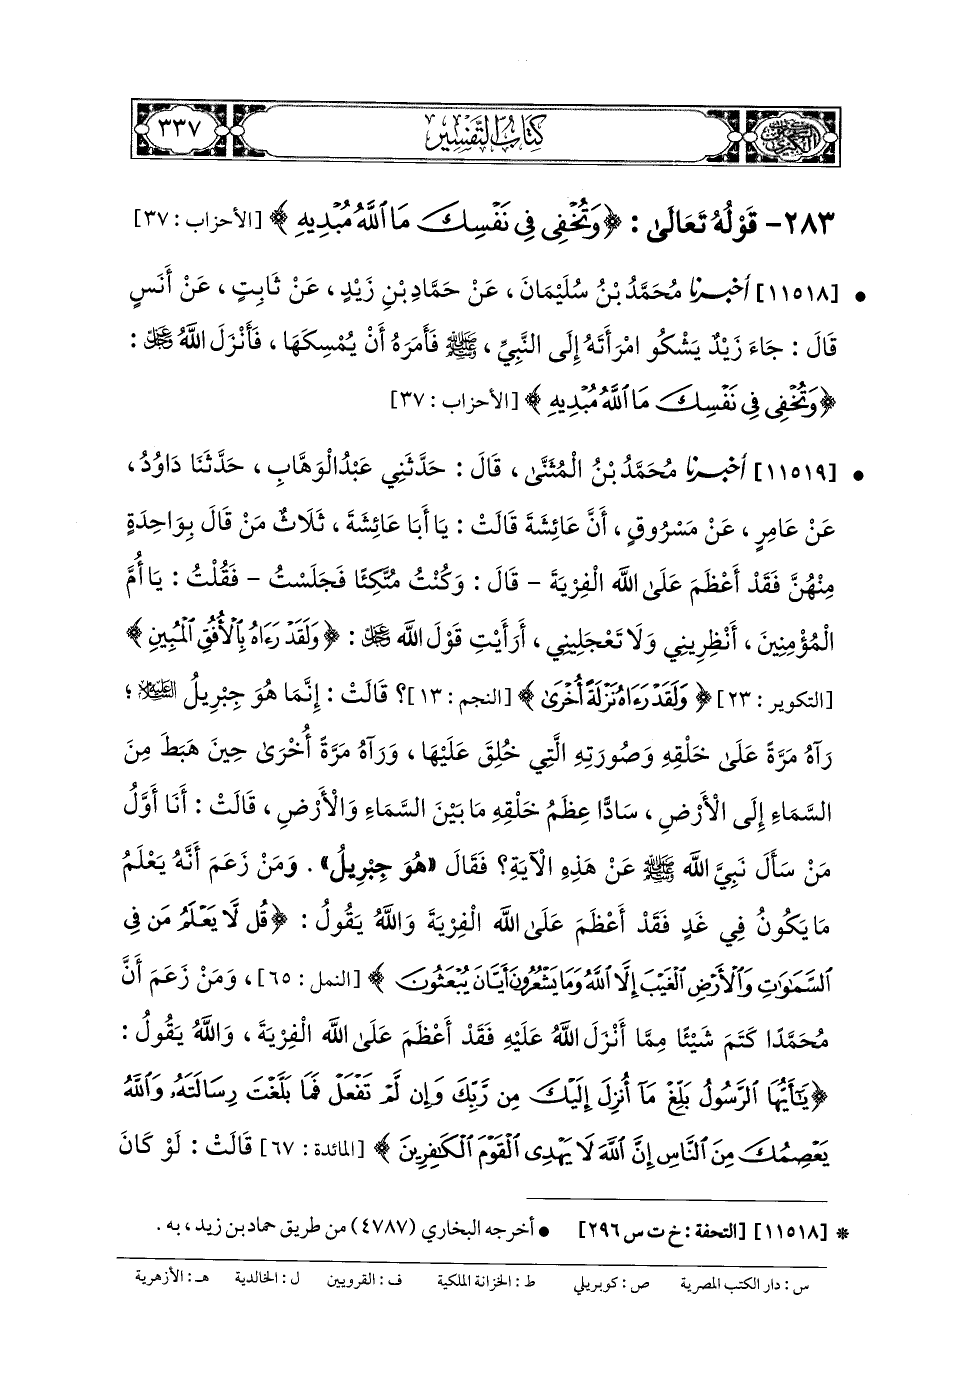 كتاب التفسير
٣٣٧
٢٨٣- قَوْلُهُ تَعَالَىٰ : ﴿وَتُخْفِى فِى نَفْسِكَ مَا ٱللَّهُ مُبْدِيهِ﴾ [الأحزاب : ٣٧]
• [١١٥١٨] أخبرنا مُحَمَّدُ بْنُ سُلَيْمَانَ ، عَنْ حَمَّادِ بْنِ زَيْدٍ ، عَنْ ثَابِتٍ ، عَنْ أَنَسٍ
قَالَ : جَاءَ زَيْدٌ يَشْكُو امْرَأَتَهُ إِلَى النَّبِيِّ ، ﷺ فَأَمَرَهُ أَنْ يُمْسِكَهَا ، فَأَنْزَلَ اللَّهُ عَزَّ وَجَلَّ :
﴿وَتُخْفِى فِى نَفْسِكَ مَا ٱللَّهُ مُبْدِيهِ﴾ [الأحزاب : ٣٧]
• [١١٥١٩] أخبرنا مُحَمَّدُ بْنُ الْمُثَنَّىٰ ، قَالَ : حَدَّثَنِي عَبْدُ الْوَهَّابِ ، حَدَّثَنَا دَاوُدُ ،
عَنْ عَامِرٍ ، عَنْ مَسْرُوقٍ ، أَنَّ عَائِشَةَ قَالَتْ : يَا أَبَا عَائِشَةَ ، ثَلَاثٌ مَنْ قَالَ بِوَاحِدَةٍ
مِنْهُنَّ فَقَدْ أَعْظَمَ عَلَىٰ اللَّهِ الْفِرْيَةَ – قَالَ : وَكُنْتُ مُتَّكِئًا فَجَلَسْتُ – فَقُلْتُ : يَا أُمَّ
الْمُؤْمِنِينَ ، أَنْظِرِينِي وَلَا تَعْجَلِينِي ، أَرَأَيْتِ قَوْلَ اللَّهِ عَزَّ وَجَلَّ : ﴿وَلَقَدْ رَءَاهُ بِٱلْأُفُقِ ٱلْمُبِينِ﴾
[التكوير : ٢٣] ﴿وَلَقَدْ رَءَاهُ نَزْلَةً أُخْرَىٰ﴾ [النجم : ١٣]؟ قَالَتْ : إِنَّمَا هُوَ جِبْرِيلُ عَلَيْهِ السَّلَامُ ؛
رَآهُ مَرَّةً عَلَىٰ خَلْقِهِ وَصُورَتِهِ الَّتِي خُلِقَ عَلَيْهَا ، وَرَآهُ مَرَّةً أُخْرَىٰ حِينَ هَبَطَ مِنَ
السَّمَاءِ إِلَى الْأَرْضِ ، سَادًّا عِظَمُ خَلْقِهِ مَا بَيْنَ السَّمَاءِ وَالْأَرْضِ ، قَالَتْ : أَنَا أَوَّلُ
مَنْ سَأَلَ نَبِيَّ اللَّهِ ﷺ عَنْ هَذِهِ الْآيَةِ؟ فَقَالَ «هُوَ جِبْرِيلُ» . وَمَنْ زَعَمَ أَنَّهُ يَعْلَمُ
مَا يَكُونُ فِي غَدٍ فَقَدْ أَعْظَمَ عَلَىٰ اللَّهِ الْفِرْيَةَ وَاللَّهُ يَقُولُ : ﴿قُل لَّا يَعْلَمُ مَن فِى
ٱلسَّمَٰوَٰتِ وَٱلْأَرْضِ ٱلْغَيْبَ إِلَّا ٱللَّهُ وَمَا يَشْعُرُونَ أَيَّانَ يُبْعَثُونَ﴾ [النمل : ٦٥] ، وَمَنْ زَعَمَ أَنَّ
مُحَمَّدًا كَتَمَ شَيْئًا مِمَّا أَنْزَلَ اللَّهُ عَلَيْهِ فَقَدْ أَعْظَمَ عَلَىٰ اللَّهِ الْفِرْيَةَ ، وَاللَّهُ يَقُولُ :
﴿يَٰٓأَيُّهَا ٱلرَّسُولُ بَلِّغْ مَآ أُنزِلَ إِلَيْكَ مِن رَّبِّكَ وَإِن لَّمْ تَفْعَلْ فَمَا بَلَّغْتَ رِسَالَتَهُۥ وَٱللَّهُ
يَعْصِمُكَ مِنَ ٱلنَّاسِ إِنَّ ٱللَّهَ لَا يَهْدِى ٱلْقَوْمَ ٱلْكَٰفِرِينَ﴾ [المائدة : ٦٧] قَالَتْ : لَوْ كَانَ
* [١١٥١٨] [التحفة : خ ت س ٢٩٦] • أخرجه البخاري (٤٧٨٧) من طريق حماد بن زيد ، به .
س : دار الكتب المصرية ص : كوبريلي ط : الخزانة الملكية ف : القرويين ل : الخالدية هـ : الأزهرية